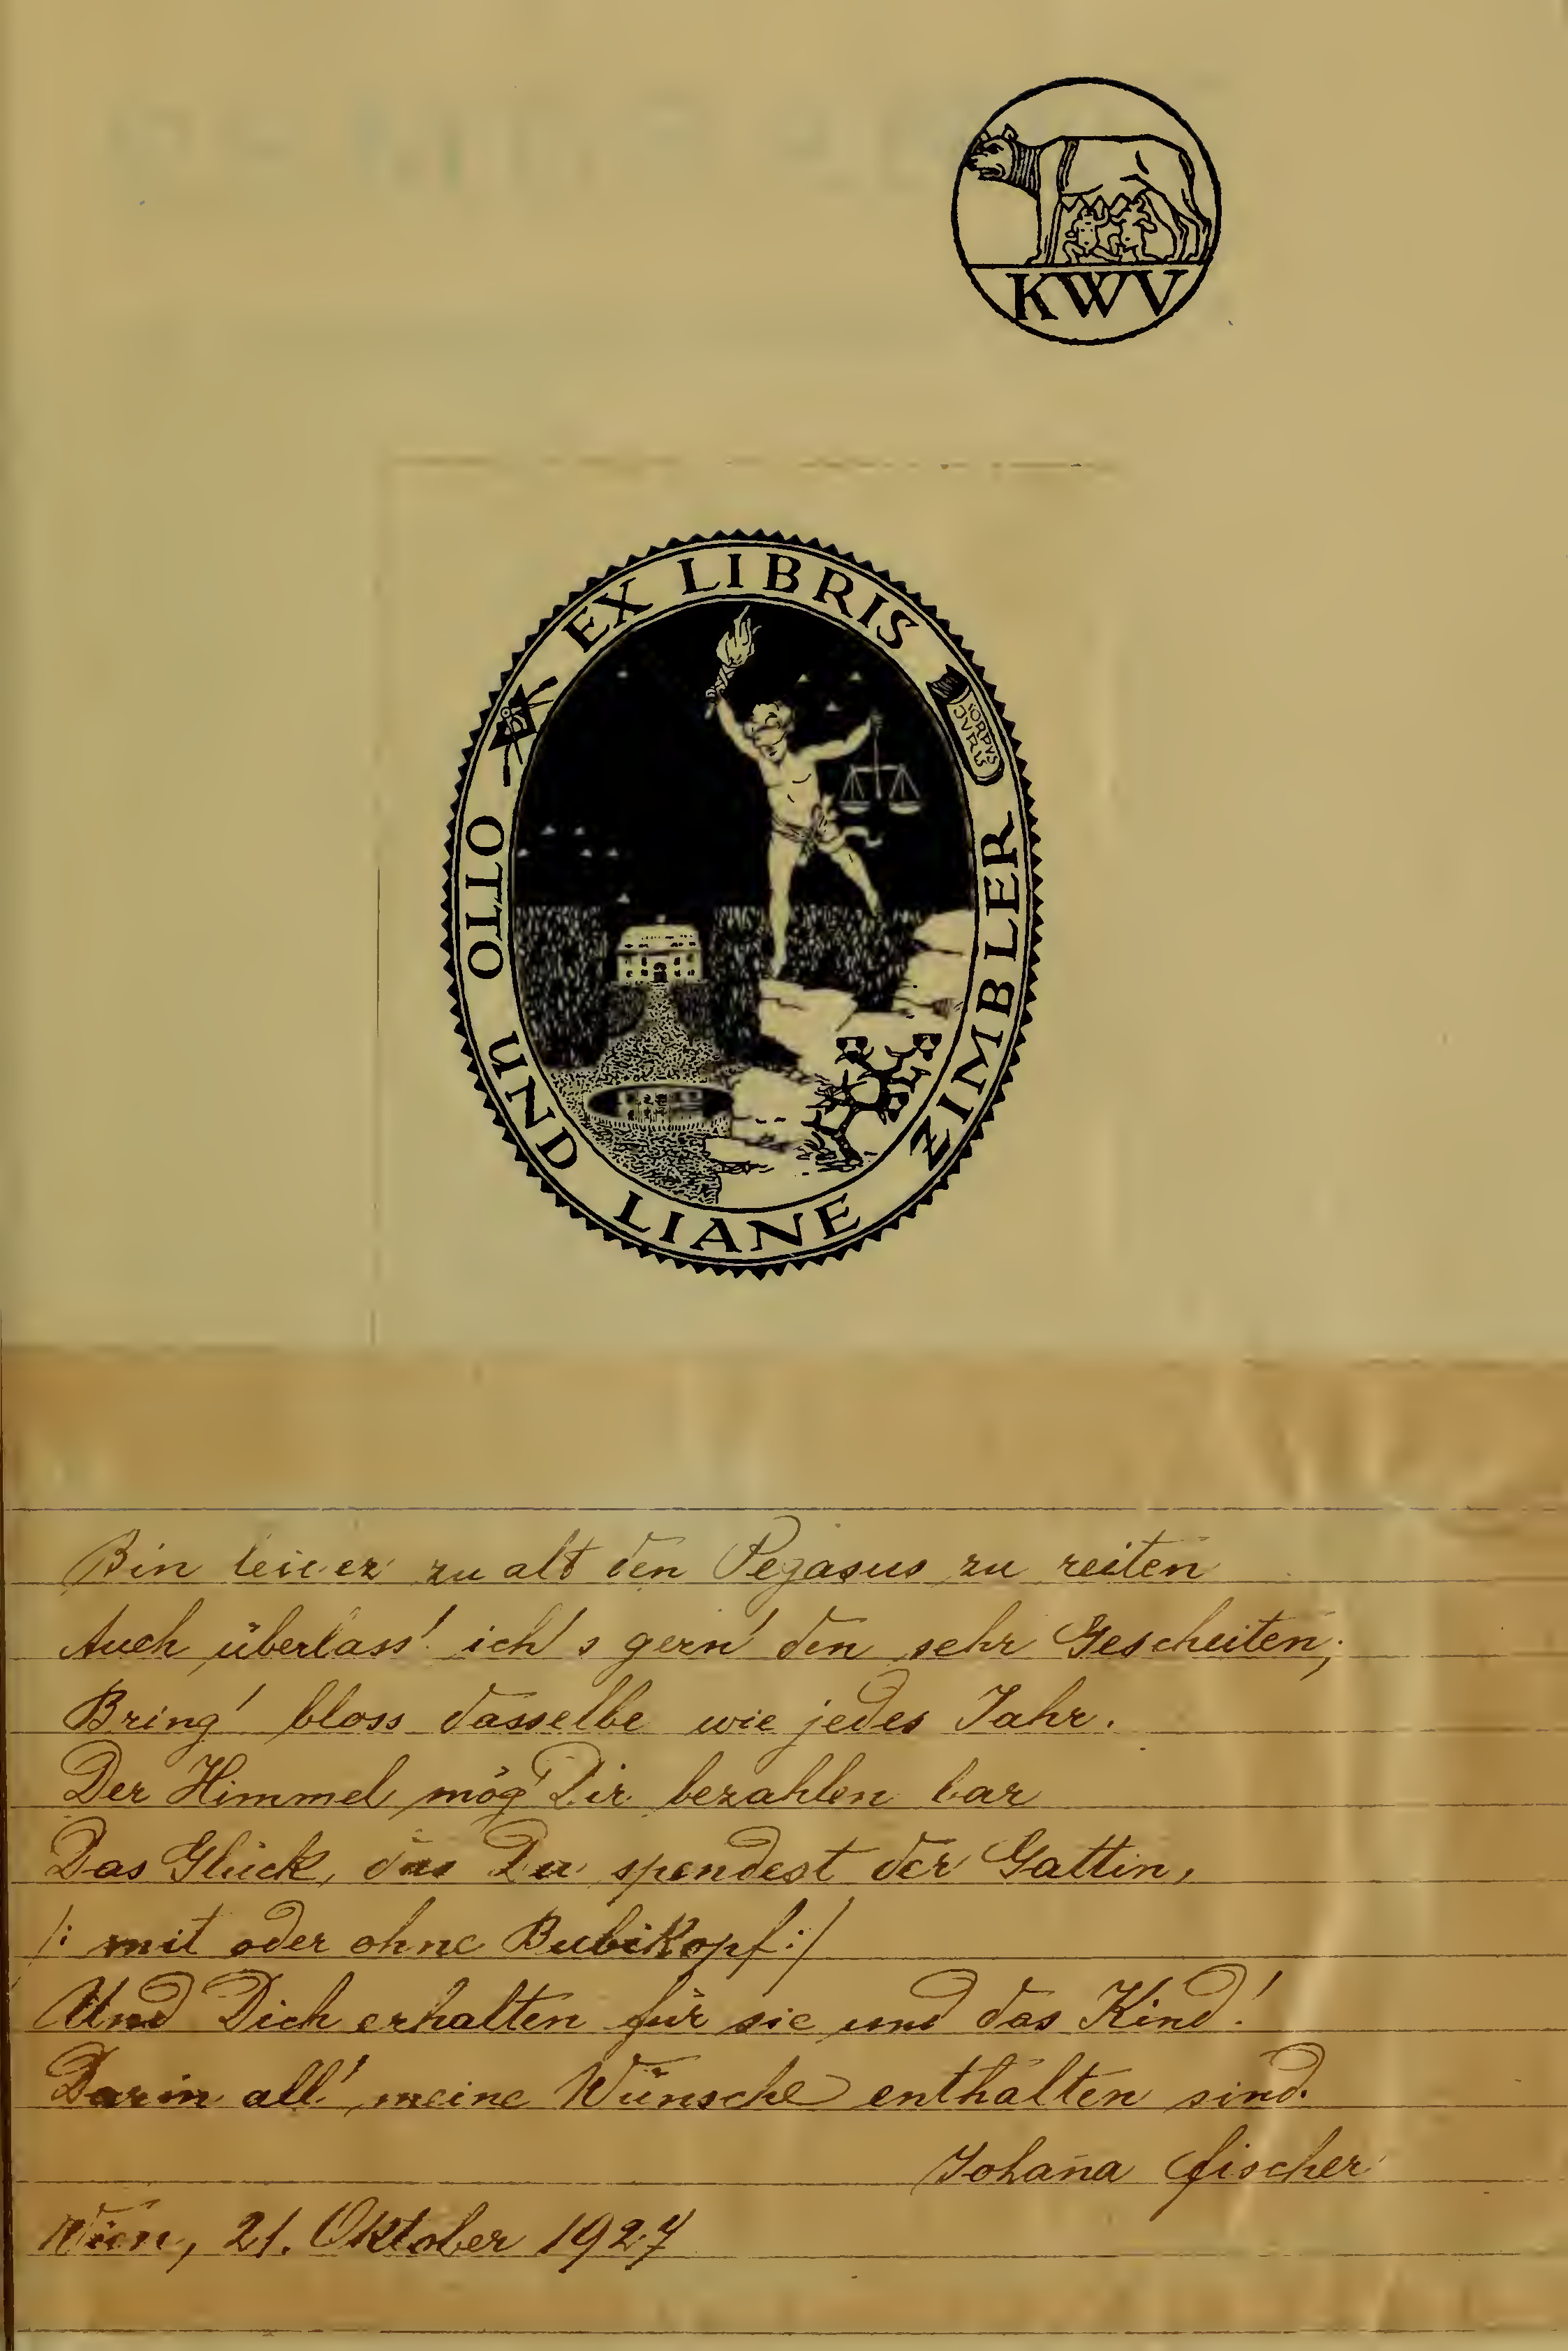 KWV
EX LIBRIS
CORPVS
JVRIS
OTTO UND LIANE ZIMBLER
Bin leider zu alt den Pegasus zu reiten
Auch überlass' ich's gern' den sehr Gescheiten;
Bring' bloss dasselbe wie jedes Jahr.
Der Himmel mög' Dir bezahlen bar
Das Glück, das Du spendest der Gattin,
/: mit oder ohne Bubikopf :/
Und Dich erhalten für sie und das Kind!
Darin all' meine Wünsche enthalten sind.
Johana Fischer
Wien, 21. Oktober 1927